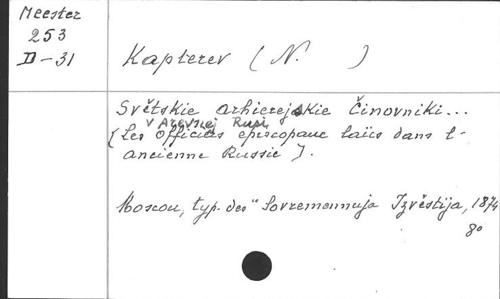 Meester
253
D-31
Kapterev (N. )
Světskie arhierejskie Činovniki...
v drevnej Rusi
[Les officiers épiscopaux laïcs dans l'-
ancienne Russie].
Moscou, typ. des "Sovremennyja Izvěstija, 1874
8°